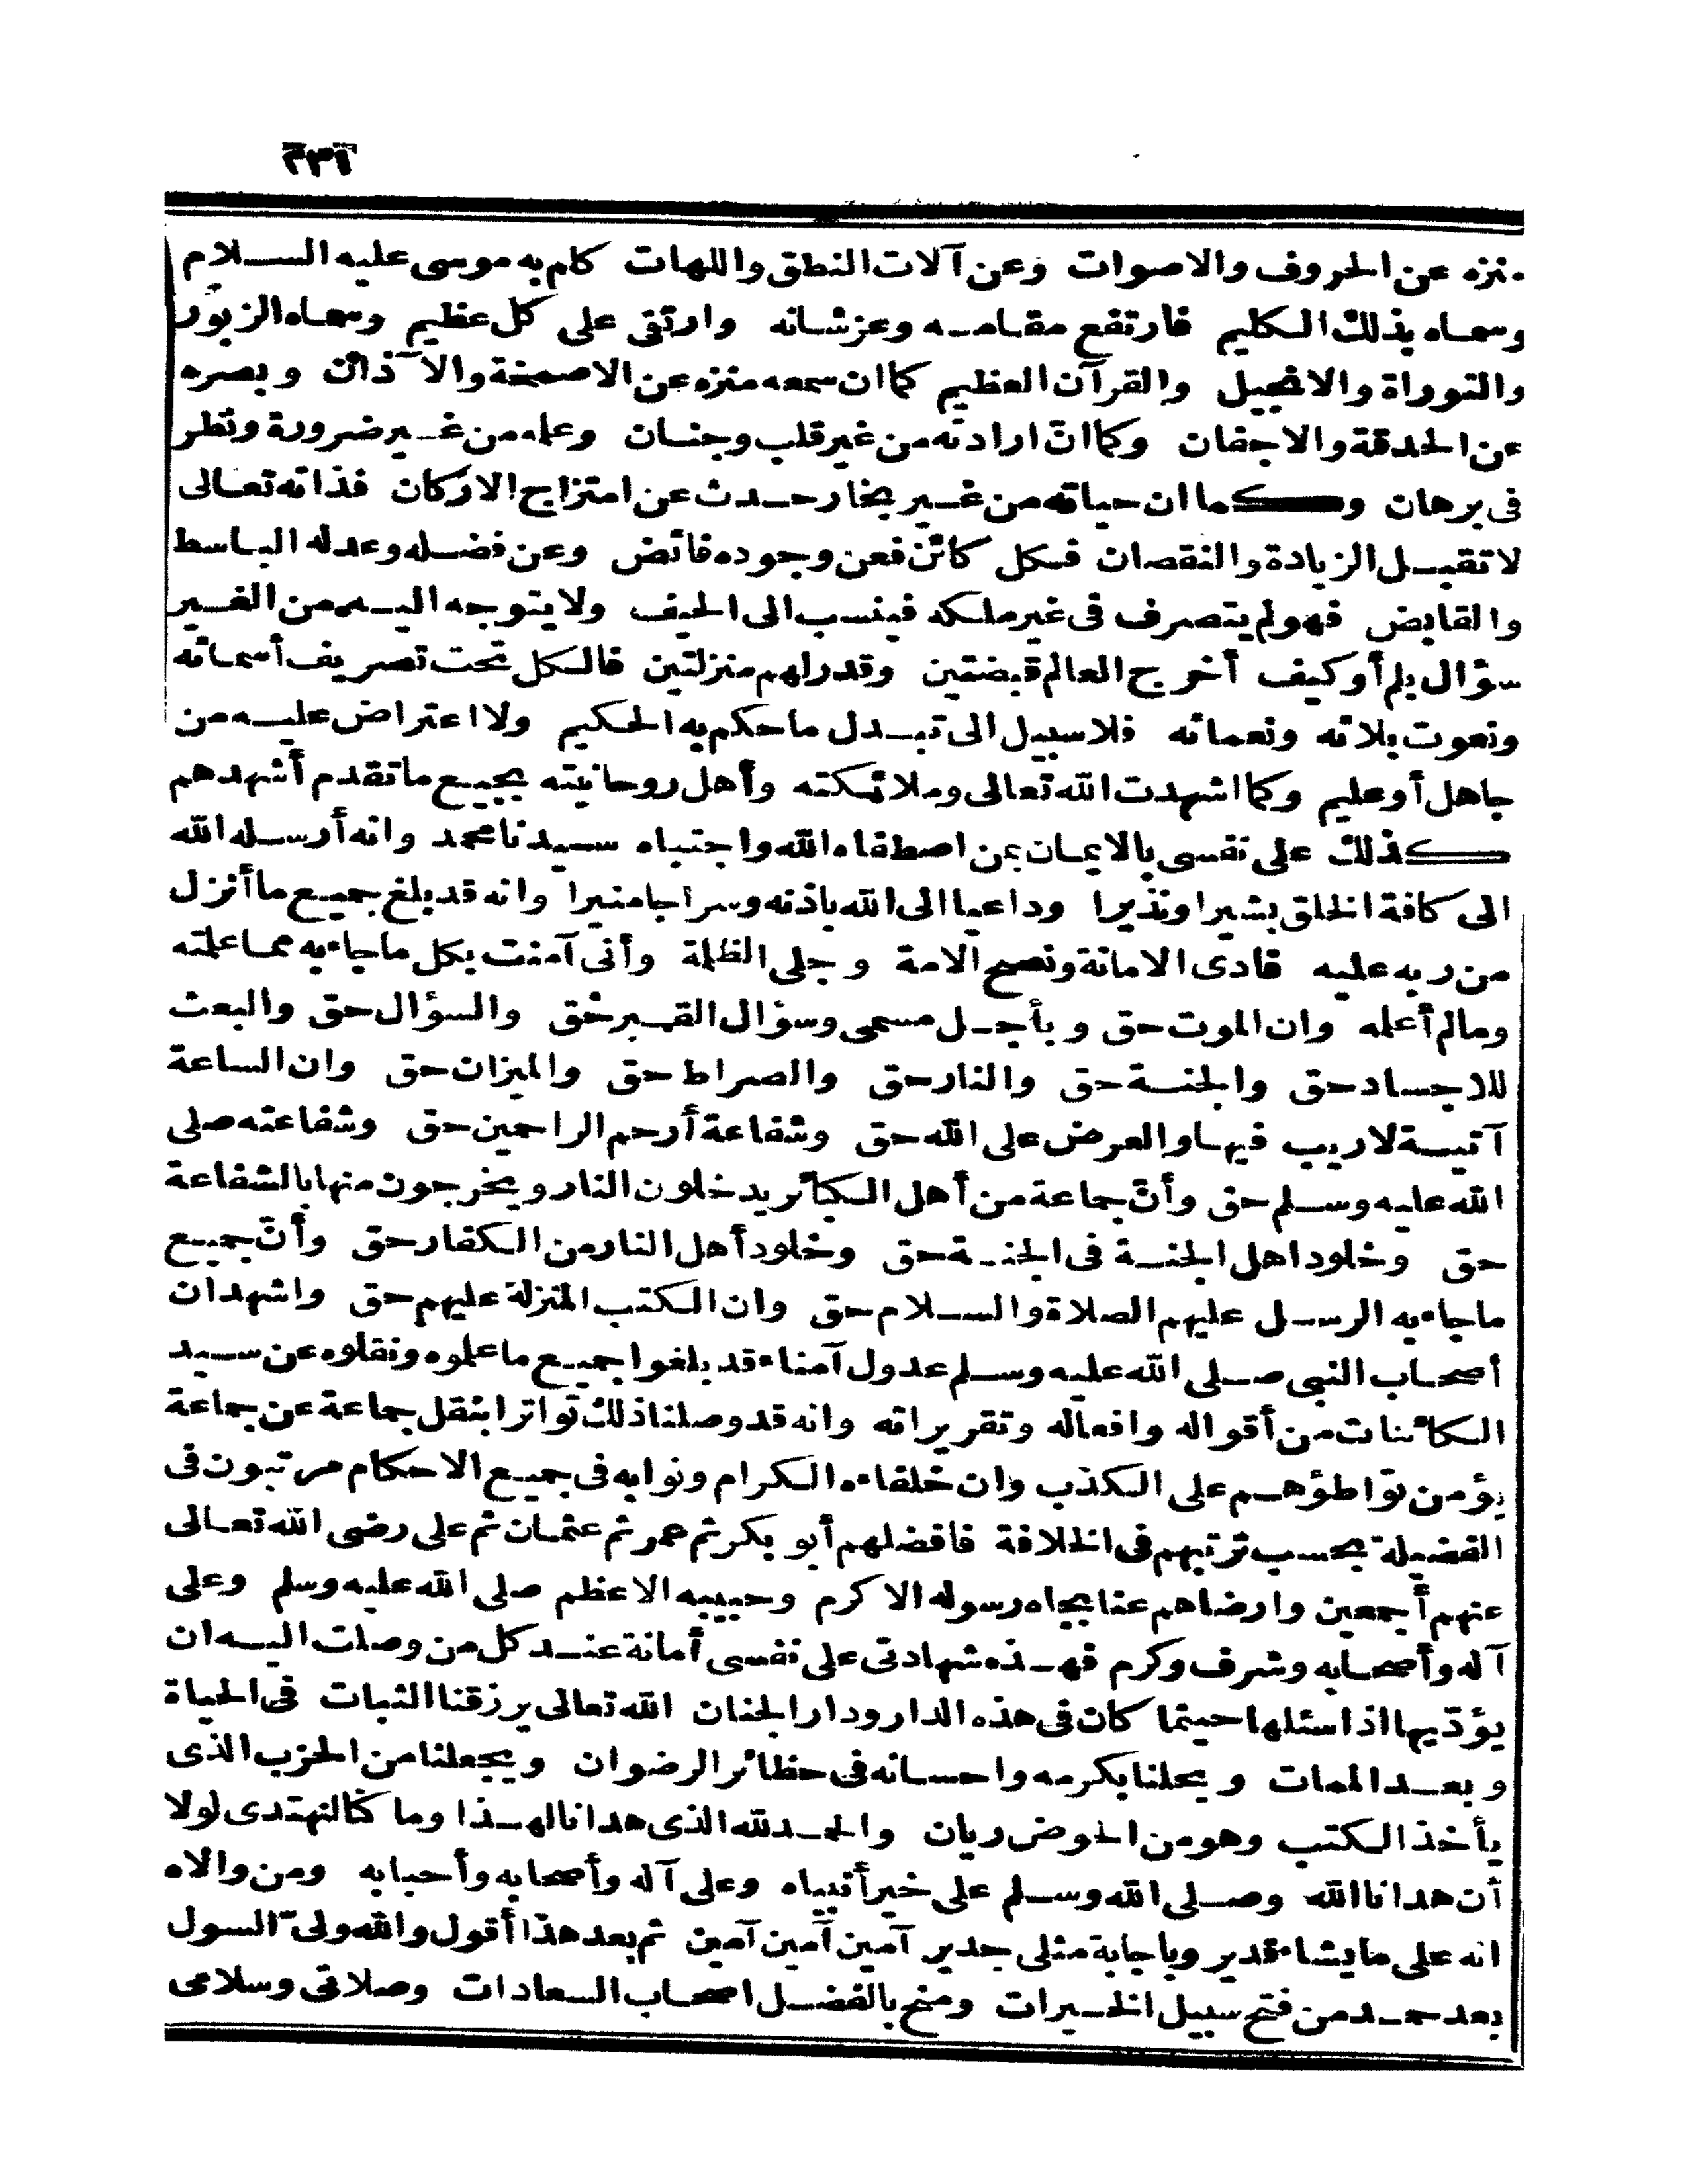 منزه عن الحروف والاصوات وعن آلات النطق واللهات كام به موسى عليه السلام
وسماه بذلك الكليم فارتفع مقامه وعز شانه وارتقى على كل عظيم وسماه الزبور
والتوراة والانجيل والقرآن العظيم كما ان سمعه منزه عن الاصمخة والآذان وبصره
عن الحدقة والاجفان وكما انّ ارادته من غير قلب وجنان وعلمه من غير ضرورة ونظر
فى برهان وكما ان حياته من غير بخار حدث عن امتزاج الاركان فذاته تعالى
لا تقبل الزيادة والنقصان فكل كائن فعن وجوده فائض وعن فضله وعدله الباسط
والقابض فهو لم يتصرف فى غير ملكه فينسب الى الحيف ولا يتوجه اليه من الغير
سؤال بلم أو كيف أخرج العالم قبضتين وقدر لهم منزلتين فالكل تحت تصريف أسمائه
ونعوت بلائه ونعمائه فلا سبيل الى تبدل ما حكم به الحكيم ولا اعتراض عليه من
جاهل أو عليم وكما اشهدت الله تعالى وملائكته وأهل روحانيته بجميع ما تقدم أشهدهم
كذلك على نفسى بالايمان بمن اصطفاه الله واجتباه سيدنا محمد وانه أرسله الله
الى كافة الخلق بشيرا ونذيرا وداعيا الى الله باذنه وسراجا منيرا وانه قد بلغ جميع ما أنزل
من ربه عليه فادى الامانة ونصح الامة وجلى الظلمة وأنى آمنت بكل ما جاء به مما علمته
ومالم أعلمه وان الموت حق وبأجل مسمى وسؤال القبر حق والسؤال حق والبعث
للاجساد حق والجنة حق والنار حق والصراط حق والميزان حق وان الساعة
آتية لا ريب فيها والعرض على الله حق وشفاعة أرحم الراحمين حق وشفاعته صلى
الله عليه وسلم حق وأنّ جماعة من أهل الكبائر يدخلون النار ويخرجون منها بالشفاعة
حق وخلود اهل الجنة فى الجنة حق وخلود أهل النار من الكفار حق وأنّ جميع
ما جاء به الرسل عليهم الصلاة والسلام حق وان الكتب المنزلة عليهم حق واشهد ان
أصحاب النبى صلى الله عليه وسلم عدول آمناء قد بلغوا جميع ما علموه ونقلوه عن سيد
الكائنات من أقواله وافعاله وتقريراته وانه قد وصلنا ذلك تواترا بنقل جماعة عن جماعة
يؤمن تواطؤهم على الكذب وان خلفاءه الكرام ونوابه فى جميع الاحكام مرتبون فى
الفضيلة بحسب ترتيبهم فى الخلافة فافضلهم أبو بكر ثم عمر ثم عثمان ثم على رضى الله تعالى
عنهم أجمعين وارضاهم عنا بجاه رسوله الاكرم وحبيبه الاعظم صلى الله عليه وسلم وعلى
آله وأصحابه وشرف وكرم فهذه شهادتى على نفسى أمانة عند كل من وصلت اليه ان
يؤدّيها اذا سئلها حيثما كان فى هذه الدار ودار الجنان الله تعالى يرزقنا الثبات فى الحياة
وبعد الممات ويحلنا بكرمه واحسانه فى حظائر الرضوان ويجعلنا من الحزب الذى
يأخذ الكتب وهو من الحوض ريان والحمد لله الذى هدانا لهذا وما كنا لنهتدى لولا
أن هدانا الله وصلى الله وسلم على خير أنبياه وعلى آله وأصحابه وأحبابه ومن والاه
انه على ما يشاء قدير وباجابة مثلى جدير آمين آمين آمين ثم بعد هذا أقول والله ولىّ السول
بعد حمد من فتح سبيل الخيرات ومنح بالفضل اصحاب السعادات وصلاتى وسلامى